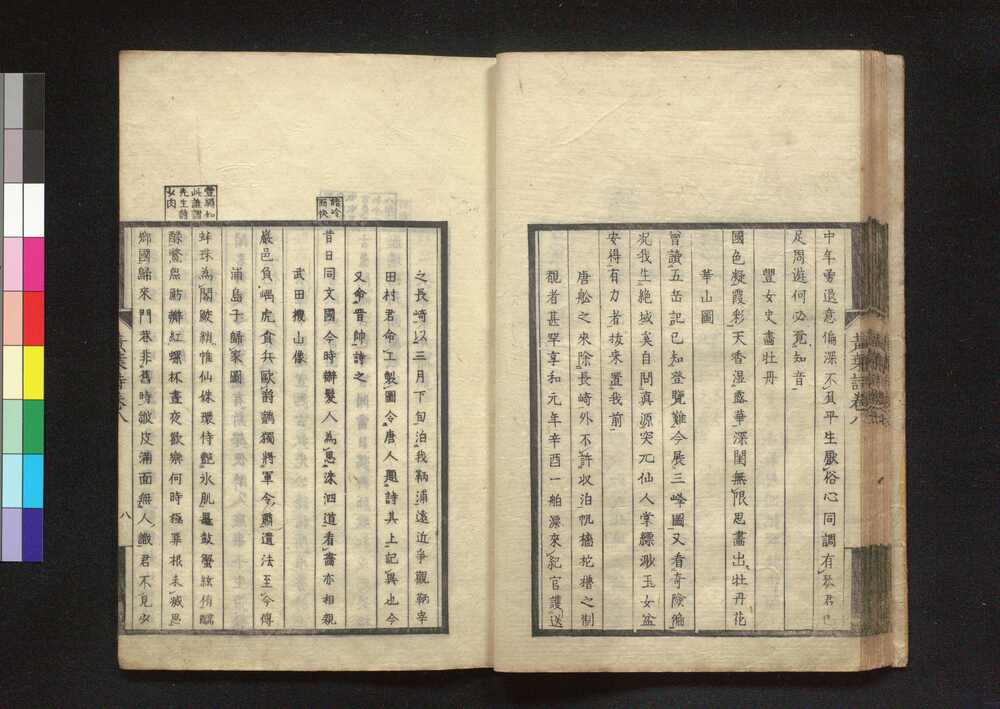 中年勇退意偏深不負平生厭俗心同調有琴君已
足周遊何必覓知音
豐女史畫牡丹
國色凝霞彩天香湿露華深閨無限思畫出牡丹花
華山圖
曾讀五岳記已知登覽難今展三峰圖又看奇險徧
况我生絶域奚自問真源突兀仙人掌縹渺玉女盆
安得有力者抜来置我前
唐舩之來除長崎外不許収泊帆檣柁櫓之制
覩者甚罕享和元年辛酉一舶漂來紀官護送
黄葉詩卷八
之長崎以三月下旬泊我鞆浦遠近爭觀鞆宰
田村君命工製圖令唐人題詩其上記異也今
又命晋帥詩之
昔日同文國今時辮髮人為思洙泗道看畵亦相親
武田機山像
巖邑負嵎虎貪兵歐爵鸇獨將軍令肅遺法至今傳
浦島子歸家圖
蚌珠為閣鮫綃帷仙姝環侍艷氷肌鼉鼓蟹絃侑醽
醁鱟
鳧肪辮紅螺杯晝夜歡娯何時極罪根未
思
鄉國歸來門巷非舊時皴皮滿面無人識君不見少
八
語冷
而快
豐腸如
此誰謂
先生詩
少肉